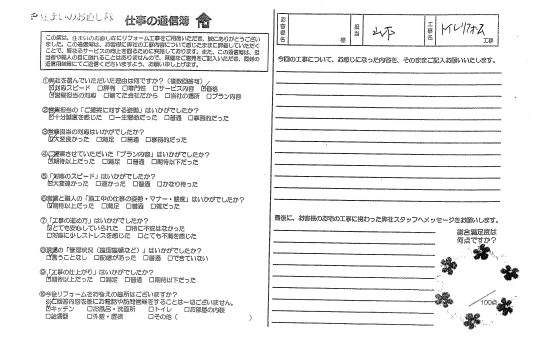 住まいのお直し隊 仕事の通信簿
この度は、住まいのお直し隊にリフォーム工事をご用命いただき、誠にありがとうござい
ました。この通信簿は、お客様に弊社の工事内容について感じたままに評価していただく
ことで、更なるサービスの向上を図るために実施しております。また、この通信簿は、営業担
当者や職人の目に触れることはありませんので、率直なご意見をご記入いただき、同封の
返信用封筒にてご返信くださいますよう、お願い申し上げます。
①弊社を選んでいただいた理由は何ですか?(複数回答可)
☑対応スピード □評判 □専門性 □サービス内容 ☑価格
□営業担当の対応 □建てた会社だから □会社の場所 □プラン内容
②営業担当の「ご提案に対する姿勢」はいかがでしたか?
☑十分誠意を感じた □一生懸命だった □普通 □事務的だった
③営業担当の対応はいかがでしたか?
☑大変良かった □満足 □普通 □事務的だった
④ご提案させていただいた「プラン内容」はいかがでしたか?
☑期待以上だった □満足 □普通 □期待以下だった
⑤「対応のスピード」はいかがでしたか?
☑大変速かった □速かった □普通 □かなり待った
⑥営業と職人の「施工中の仕事の姿勢・マナー・態度」はいかがでしたか?
☑期待以上だった □満足 □普通 □雑だった
⑦「工事の進め方」はいかがでしたか?
☑とても安心していられた □特に不安はなかった
□対応に少しストレスを感じた □とても不満を感じた
⑧現場の「管理状況(整理整頓など)」はいかがでしたか?
☑言うことなし □配慮があった □普通 □できていない
⑨「工事の仕上がり」はいかがでしたか?
☑期待以上だった □満足 □普通 □期待以下だった
⑩今後リフォームをお考えの箇所はございますか?
☑キッチン □お風呂・洗面所 □トイレ □お部屋の内装
□給湯器 □外壁・屋根 □その他(
お客様名 様 担当 山下 工事名 トイレリフォーム 工事
今回の工事について、お感じになった内容を、そのままご記入お願いいたします。
最後に、お客様のお宅の工事に携わった弊社スタッフへメッセージをお願いします。
総合満足度は
何点ですか?
/100点